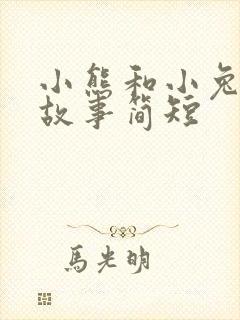 小熊和小兔
故事简短
馬光明